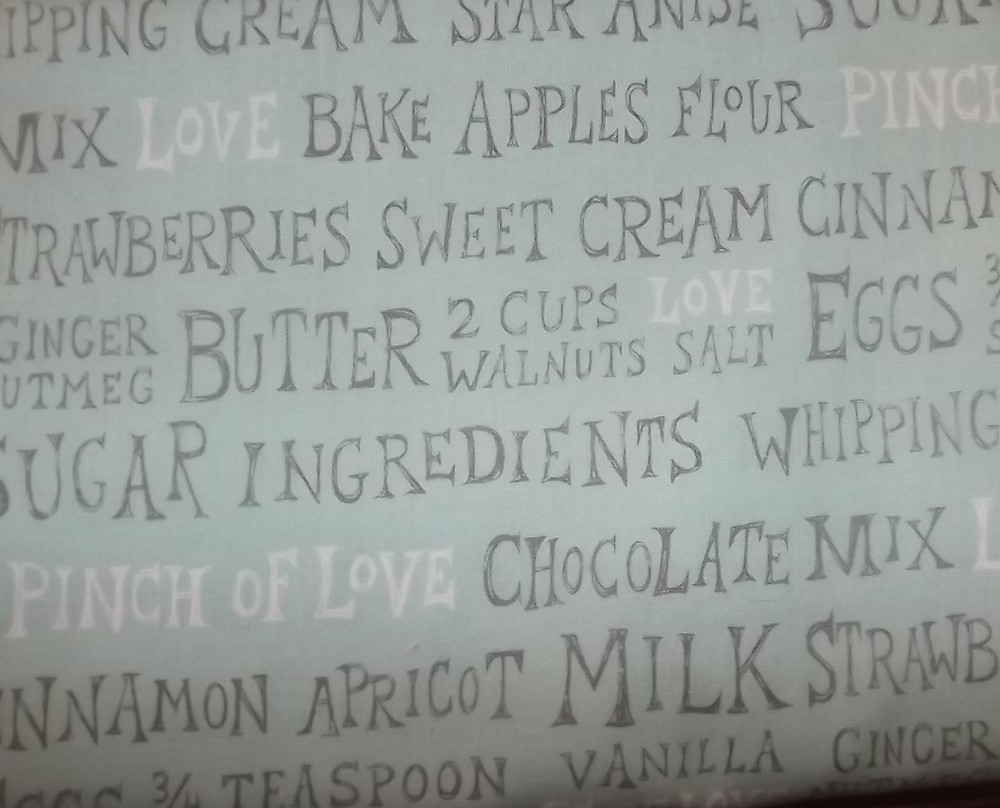 IPPING CREAM STAR ANISE SUGAR
MIX LOVE BAKE APPLES FLOUR PINCH
TRAWBERRIES SWEET CREAM CINNAN
GINGER BUTTER 2 CUPS LOVE EGGS 3
UTMEG WALNUTS SALT
SUGAR INGREDIENTS WHIPPING
PINCH OF LOVE CHOCOLATE MIX L
NNAMON APRICOT MILK STRAWB
EGGS 3/4 TEASPOON VANILLA GINGER
LOVE NUTMEG